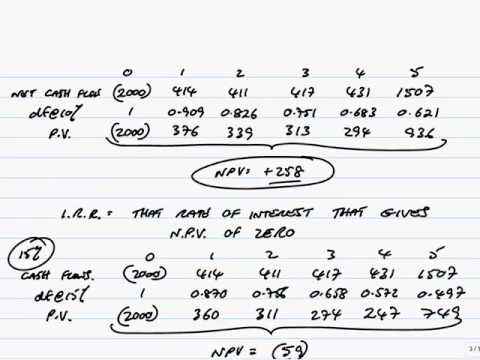 0 1 2 3 4 5
NET CASH FLOWS (2000) 414 411 417 431 1507
df@10% 1 0.909 0.826 0.751 0.683 0.621
P.V. (2000) 376 339 313 294 936
NPV = +258
I.R.R. = THAT RATE OF INTEREST THAT GIVES
N.P.V. OF ZERO
15%
0 1 2 3 4 5
CASH FLOWS. (2000) 414 411 417 431 1507
df@15% 1 0.870 0.756 0.658 0.572 0.497
P.V. (2000) 360 311 274 247 749
NPV = (59)